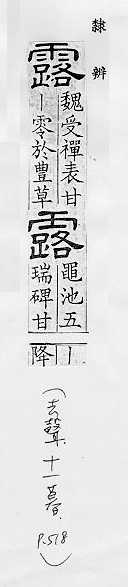 隸辨
露
魏受禪表甘
｜零於豐草
露
黽池五
瑞碑甘
｜
降
(去聲十一暮
P.518)